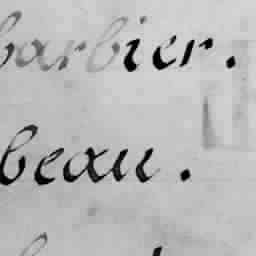 barbier.
beau.